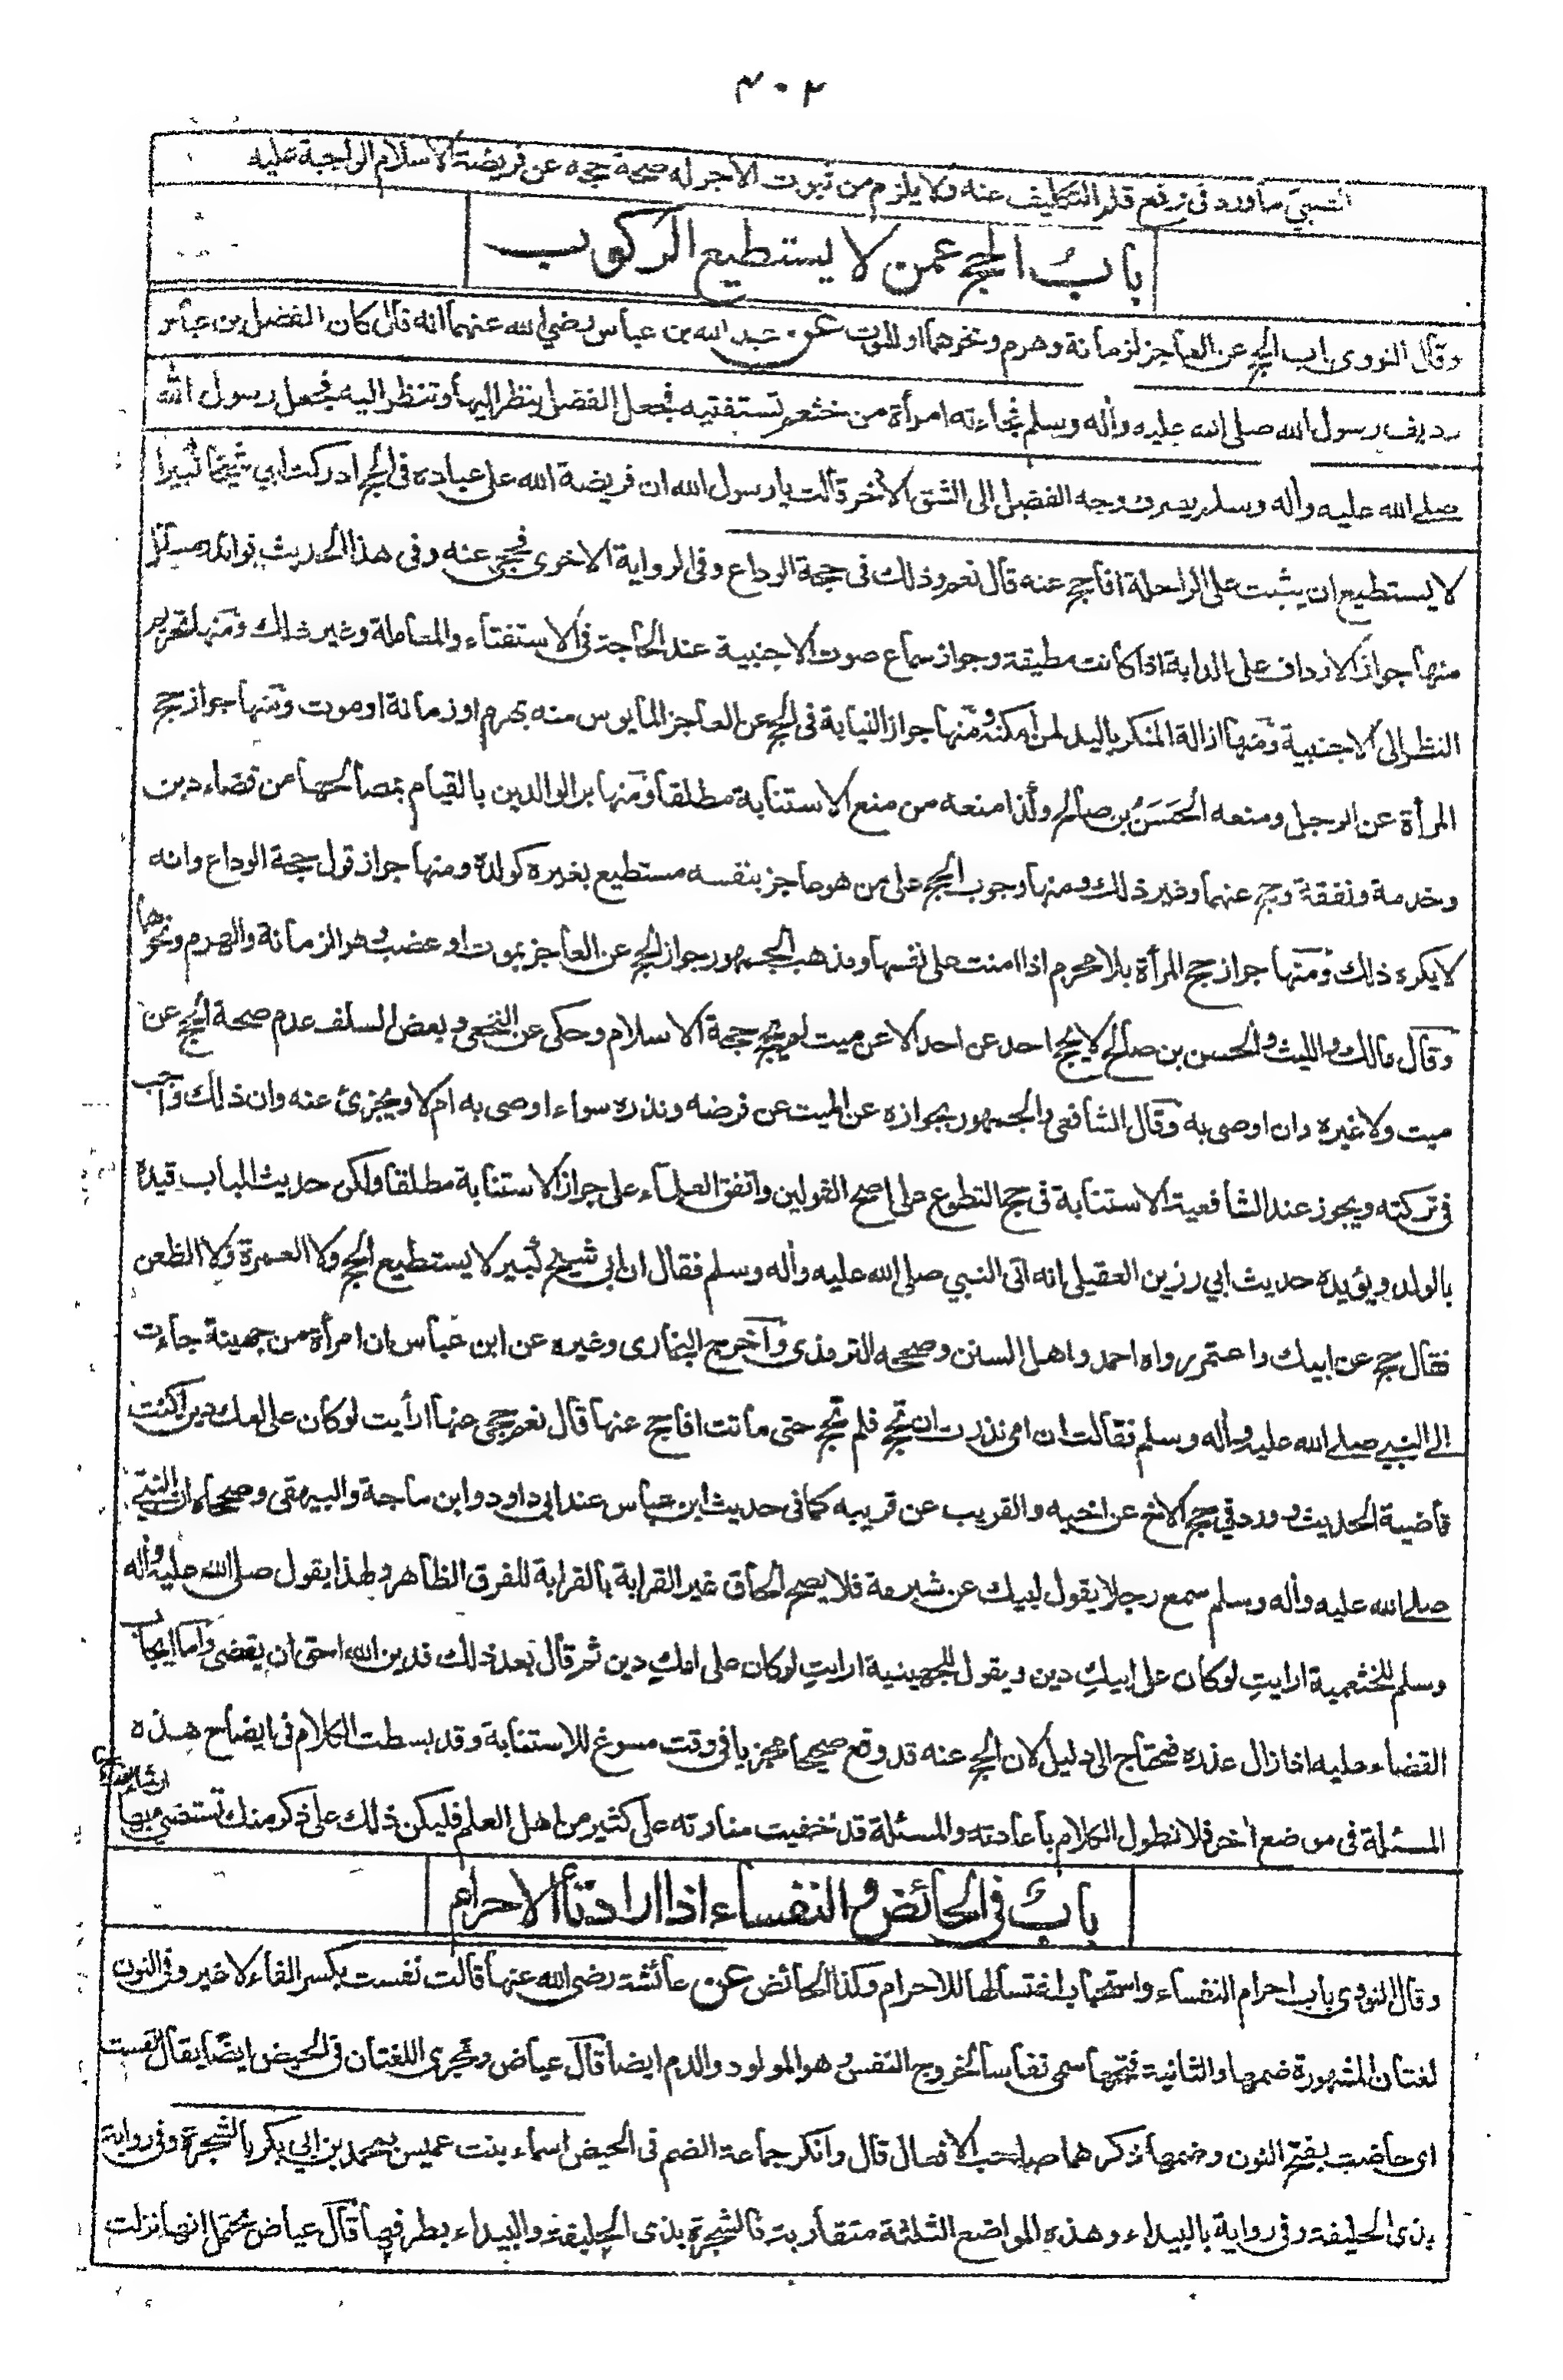 ٤٠٢
الصبي ما ورد في رفع قلم التكليف عنه ولا يلزم من ثبوت الاجر له صحة حجه عن فريضة الاسلام الواجبة عليه
باب الحج عمن لا يستطيع الركوب
وقال النووى باب الحج عن العاجز لزمانة وهرم ونحوهما او للموت عن عبد الله بن عباس رضي الله عنهما انه قال كان الفضل بن عباس
رديف رسول الله صلى الله عليه وأله وسلم فجاءته امرأة من خثعم تستفتيه فجعل الفضل ينظر اليها وتنظر اليه فجعل رسول الله
صلے الله عليه وأله وسلم يصرف وجه الفضل الى الشق الأخر قالت يا رسول الله ان فريضة الله على عباده في الحج ادركت ابي شيخا كبيرا
لا يستطيع ان يثبت على الراحلة افاحج عنه قال نعم وذلك في حجة الوداع وفى الرواية الاخرى فحجى عنه وفى هذا الحديث فوائد
منها جواز الارداف على الدابة اذا كانت مطيقة وجواز سماع صوت الاجنبية عند الحاجة فى الاستفتاء والمعاملة وغير ذلك ومنها تحريم
النظر الى الاجنبية ومنها ازالة المنكر باليد لمن امكنه ومنها جواز النيابة فى الحج عن العاجز المايوس منه بهرم او زمانة او موت ومنها جواز حج
المرأة عن الرجل ومنعه الحسن بن صالح وكذا منعه من منع الاستنابة مطلقا ومنها بر الوالدين بالقيام بمصالحهما من قضاء دين
وخدمة ونفقة وحج عنهما وغير ذلك ومنها وجوب الحج على من هو عاجز بنفسه مستطيع بغيره كولده ومنها جواز قول حجة الوداع وانه
لا يكره ذلك ومنها جواز حج المرأة بلا محرم اذا امنت على نفسها ومذهب الجمهور جواز الحج عن العاجز بموت او عضب وهو الزمانة والهرم ونحوها
وقال مالك والليث والحسن بن صالح لا يحج احد عن احد الا عن ميت لم يحج حجة الاسلام وحكى عن النخعى وبعض السلف عدم صحة الحج عن
ميت ولا غيره وان اوصى به وقال الشافعى والجمهور بجوازه عن الميت عن فرضه ونذره سواء اوصى به ام لا ويجزئ عنه وان ذلك واجب
فى تركته ويجوز عند الشافعية الاستنابة فى حج التطوع على اصح القولين واتفق العلماء على جواز الاستنابة مطلقا ولكن حديث الباب قيده
بالولد ويؤيده حديث ابي رزين العقيلى انه اتى النبي صلى الله عليه وأله وسلم فقال ان ابي شيخ كبير لا يستطيع الحج ولا العمرة ولا الظعن
فقال حج عن ابيك واعتمر رواه احمد واهل السنن وصححه الترمذى وأخرج البخارى وغيره عن ابن عباس ان امرأة من جهينة جاءت
الى النبي صلے الله عليه وأله وسلم فقالت ان امى نذرت ان تحج فلم تحج حتى ماتت افاحج عنها قال نعم حجى عنها ارأيت لو كان على امك دين اكنت
قاضية الحديث وورد فى حج الاخ عن اخيه والقريب عن قريبه كما فى حديث ابن عباس عند ابى داود وابن ماجة والبيهقى وصححاه ان النبي
صلے الله عليه وأله وسلم سمع رجلا يقول لبيك عن شبرمة فلا يصح الحاق غير القرابة بالقرابة للفرق الظاهر ولهذا يقول صلى الله عليه وأله
وسلم للخثعمية ارايت لو كان على ابيك دين ويقول للجهينية ارايت لو كان على امك دين ثم قال بعد ذلك فدين الله احق ان يقضى وأما ايجاب
القضاء عليه اذا زال عذره فمحتاج الى دليل لان الحج عنه قد وقع صحيحا مجزيا فى وقت مسوغ للاستنابة وقد بسطت الكلام فى ايضاح هذه
المسئلة فى موضع أخر فلا نطول الكلام باعادته والمسئلة قد خفيت مداركه على كثير من اهل العلم فليكن ذلك على ذكر منك تستضئ بها
باب فى الحائض والنفساء اذا ارادتا الاحرام
وقال النووى باب احرام النفساء واستحباب اغتسالها للاحرام وكذا الحائض عن عائشة رضى الله عنها قالت نفست بكسر الفاء لا غير وفى النون
لغتان المشهورة ضمها والثانية فتحها سمى نفاسا لخروج النفس وهو المولود والدم ايضا قال عياض وتجرى اللغتان فى الحيض ايضا يقال نفست
اى حاضت بفتح النون وضمها ذكرهما صاحب الافعال قال وانكر جماعة الضم فى الحيض اسماء بنت عميس بمحمد بن ابى بكر بالشجرة وفى رواية
بذى الحليفة وفى رواية بالبيداء وهذه المواضع الثلثة متقاربة فالشجرة بذى الحليفة والبيداء بطرفها قال عياض يحتمل انها نزلت